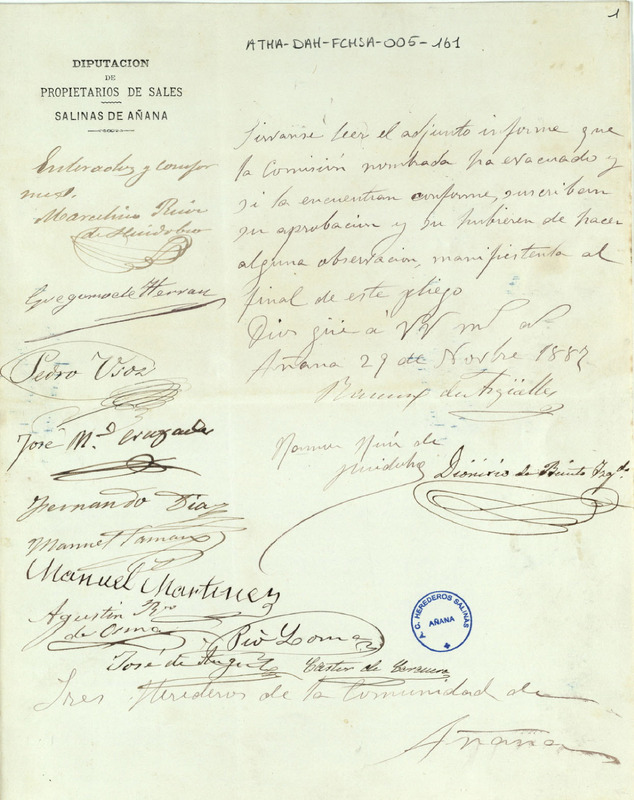 1
ATHA-DAH-FCHSA-005-161
DIPUTACION
DE
PROPIETARIOS DE SALES
SALINAS DE AÑANA
Sirvanse leer el adjunto informe que
la Comisión nombrada ha evacuado y
si la encuentran conforme, suscriban
su aprobacion y su hubieren de hacer
alguna observacion, manifiestenla al
final de este pliego
Dios güe á VV m.s a.s
Añana 29 de Novbre 1887
Enterados y confor
mes.
Marcelino Ruiz
de Huidobro
Gregorio de Herran
Pedro Usos
José M.a
Fernando Diaz
Manuel
Manuel Martinez
Agustin
de Osma
Pio Loma
José de
Castor de
Ramon Ruiz de
Huidobro
Dionisio de Benito
T. C. HEREDEROS SALINAS
AÑANA
Sres Herederos de la Comunidad de
Añana